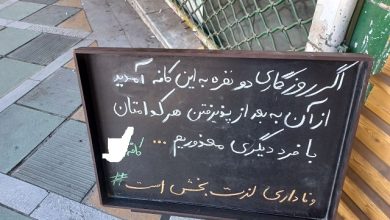 اگر روزگاری دو نفره به این کافه آمدید
از آن به بعد از پذیرفتن هر کدامتان
با فرد دیگری معذوریم ...
کافه
#وفاداری لذت بخش است